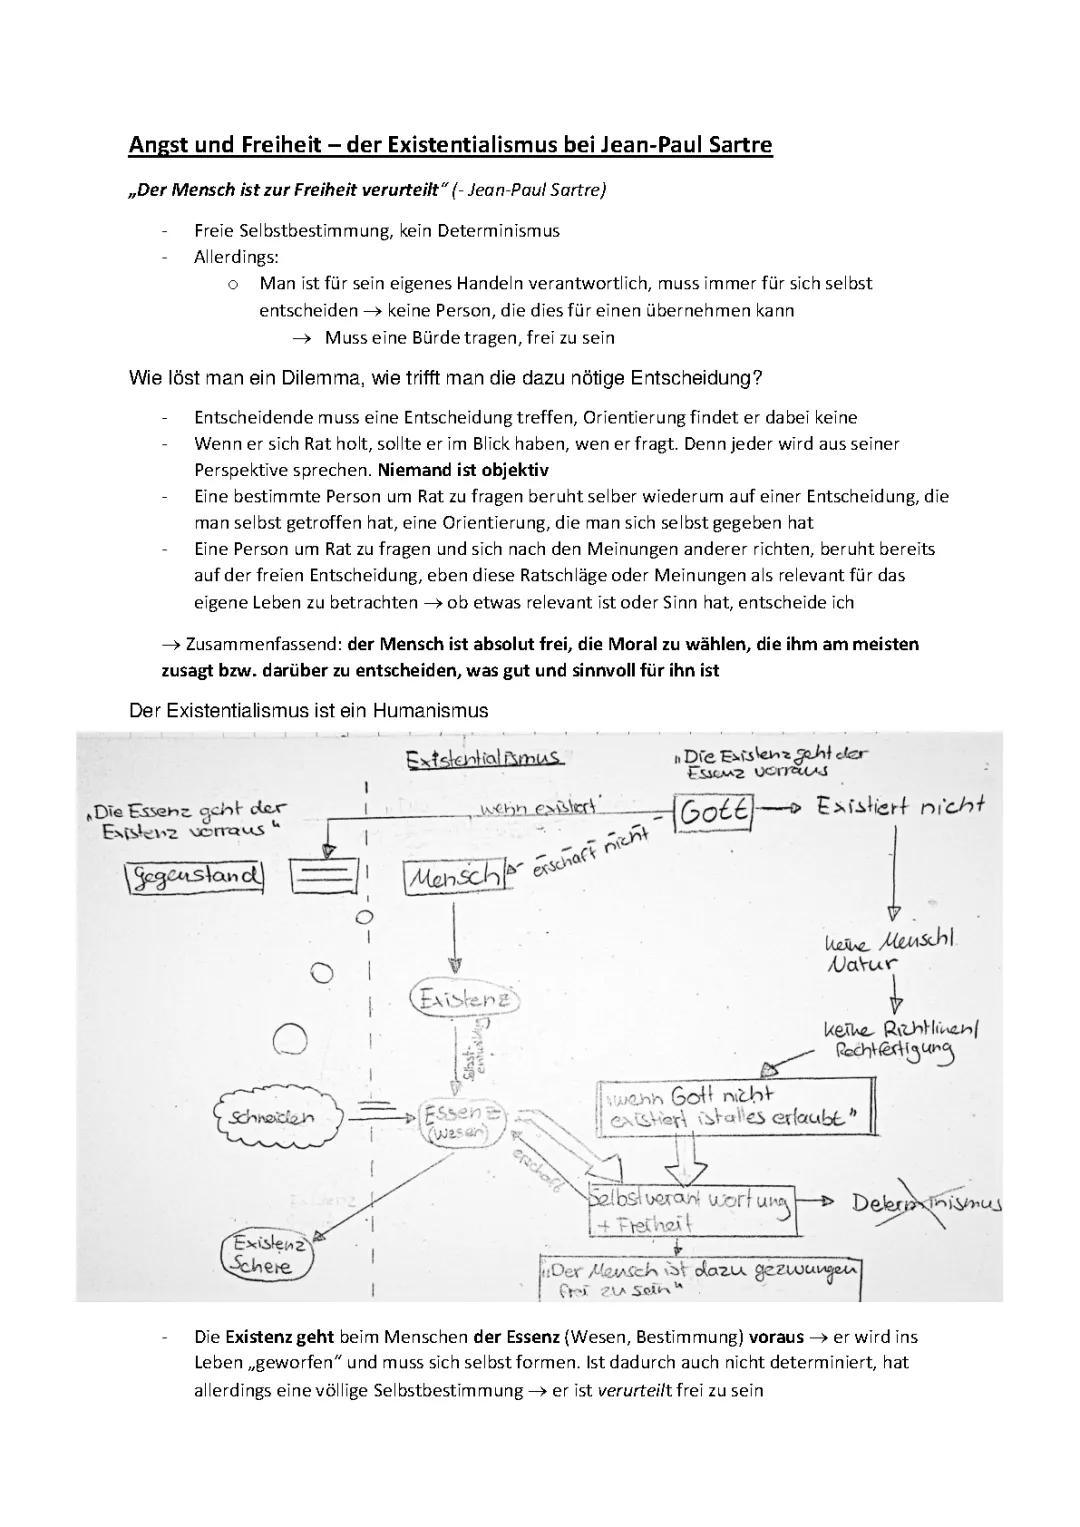 Angst und Freiheit – der Existentialismus bei Jean-Paul Sartre
„Der Mensch ist zur Freiheit verurteilt“ (- Jean-Paul Sartre)
- Freie Selbstbestimmung, kein Determinismus
- Allerdings:
o Man ist für sein eigenes Handeln verantwortlich, muss immer für sich selbst
entscheiden → keine Person, die dies für einen übernehmen kann
→ Muss eine Bürde tragen, frei zu sein
Wie löst man ein Dilemma, wie trifft man die dazu nötige Entscheidung?
- Entscheidende muss eine Entscheidung treffen, Orientierung findet er dabei keine
- Wenn er sich Rat holt, sollte er im Blick haben, wen er fragt. Denn jeder wird aus seiner
Perspektive sprechen. Niemand ist objektiv
- Eine bestimmte Person um Rat zu fragen beruht selber wiederum auf einer Entscheidung, die
man selbst getroffen hat, eine Orientierung, die man sich selbst gegeben hat
- Eine Person um Rat zu fragen und sich nach den Meinungen anderer richten, beruht bereits
auf der freien Entscheidung, eben diese Ratschläge oder Meinungen als relevant für das
eigene Leben zu betrachten → ob etwas relevant ist oder Sinn hat, entscheide ich
→ Zusammenfassend: der Mensch ist absolut frei, die Moral zu wählen, die ihm am meisten
zusagt bzw. darüber zu entscheiden, was gut und sinnvoll für ihn ist
Der Existentialismus ist ein Humanismus
Existentialismus
„Die Existenz geht der
Essenz vorraus
„Die Essenz geht der
Existenz vorraus“
wenn existiert
Gott → Existiert nicht
Gegenstand
Mensch
erschaft nicht
keine Menschl.
Natur
Existenz
Selbst-
entwicklung
keine Richtlinen/
Rechtfertigung
„wenn Gott nicht
existiert ist alles erlaubt“
Schneiden
Essenz
(Wesen)
erschaft
Selbstverantwortung
+ Freiheit
→ Determinismus
Existenz
Existenz
Schere
„Der Mensch ist dazu gezwungen
frei zu sein“
- Die Existenz geht beim Menschen der Essenz (Wesen, Bestimmung) voraus → er wird ins
Leben „geworfen“ und muss sich selbst formen. Ist dadurch auch nicht determiniert, hat
allerdings eine völlige Selbstbestimmung → er ist verurteilt frei zu sein